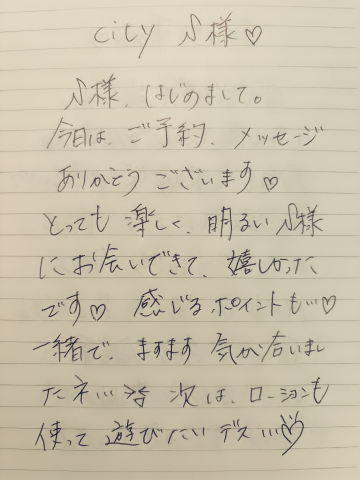 city S様♡
S様、はじめまして。
今日は、ご予約、メッセージ
ありがとうございます♡
とっても楽しく、明るいS様
にお会いできて、嬉しかった
です♡ 感じるポイントも…♡
一緒で、ますます気が合いまし
たネ… 次は、ローションも
使って遊びたいデス…♡